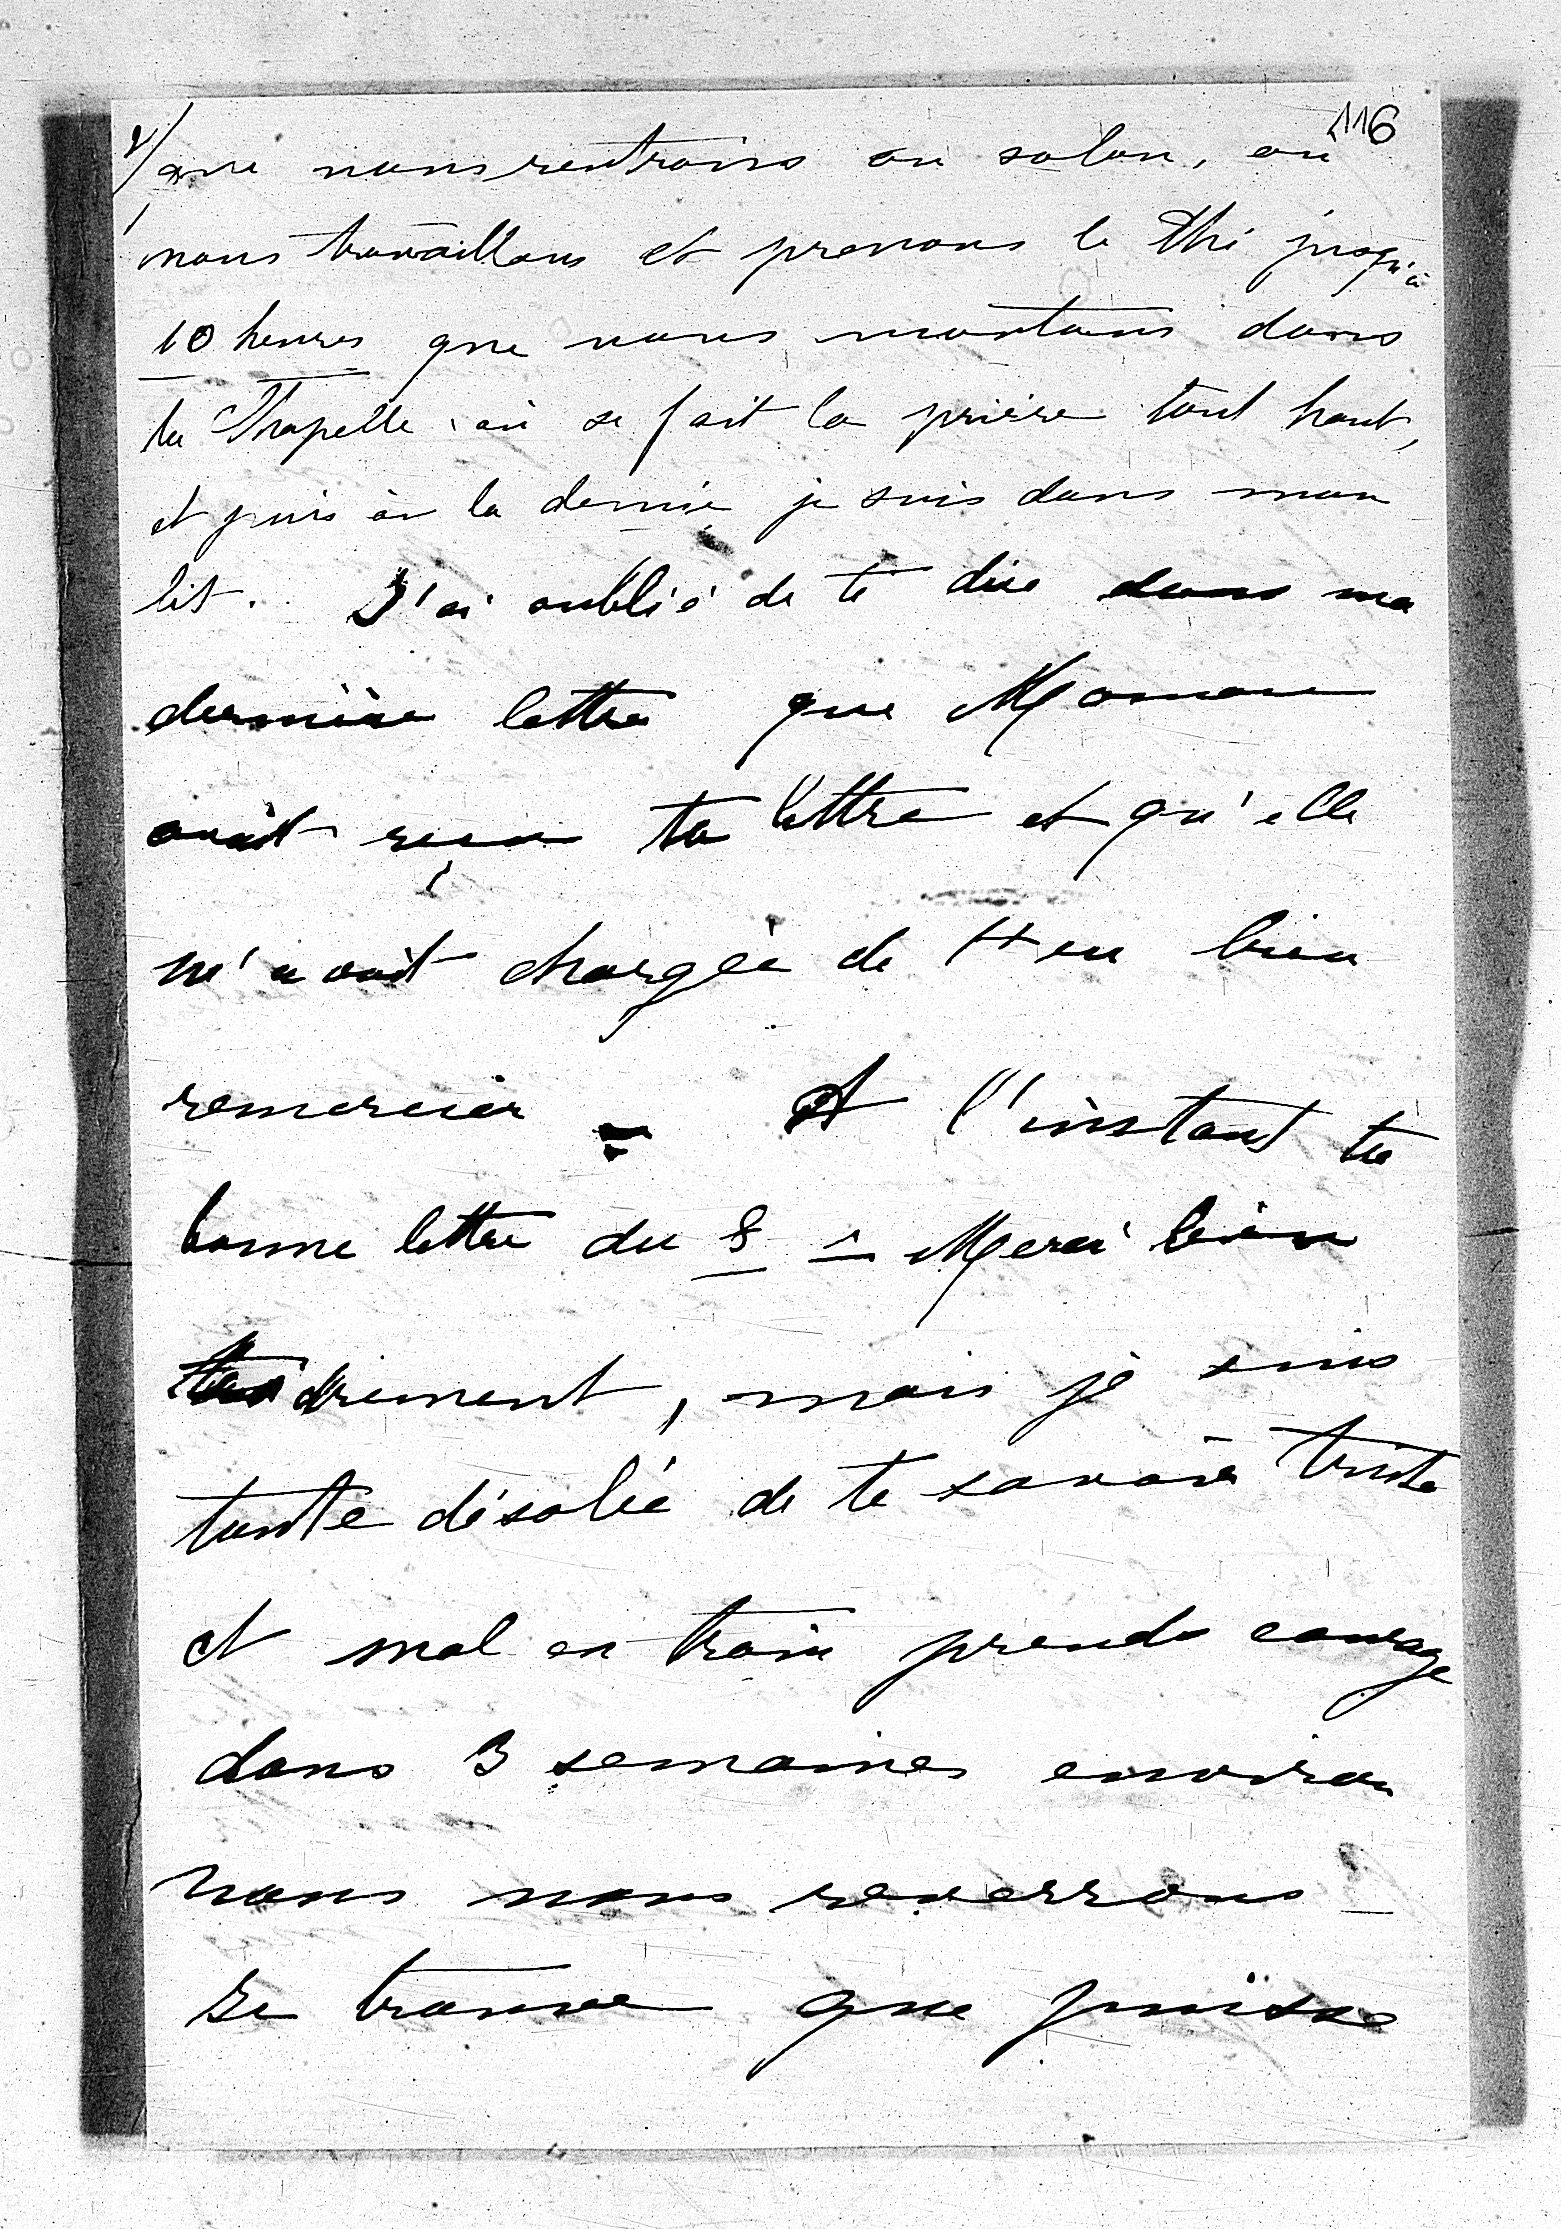 116
2/ que nous rentrons au salon, où
nous travaillons et prenons le Thé jusqu'à
10 heures que nous montons dans
la Chapelle où se fait la prière tout haut,
et puis à la demie je suis dans mon
lit. J'ai oublié de te dire dans ma
dernière lettre que Maman
avait reçu ta lettre et qu'elle
m'avait chargée de t'en bien
remercier – A l'instant ta
bonne lettre du 8 – Merci bien
tendrement, mais je suis
toute désolée de te savoir triste
et mal en train prends courage
dans 3 semaines environ
nous nous reverrons –
Je trouve que puisse